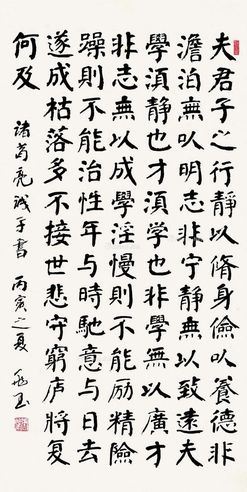 夫君子之行靜以脩身儉以養德非
澹泊無以明志非宁靜無以致遠夫
學須靜也才須學也非學無以廣才
非志無以成學淫慢則不能励精險
躁則不能治性年与時馳意与日去
遂成枯落多不接世悲守窮庐將复
何及
諸葛亮誡子書 丙寅之夏